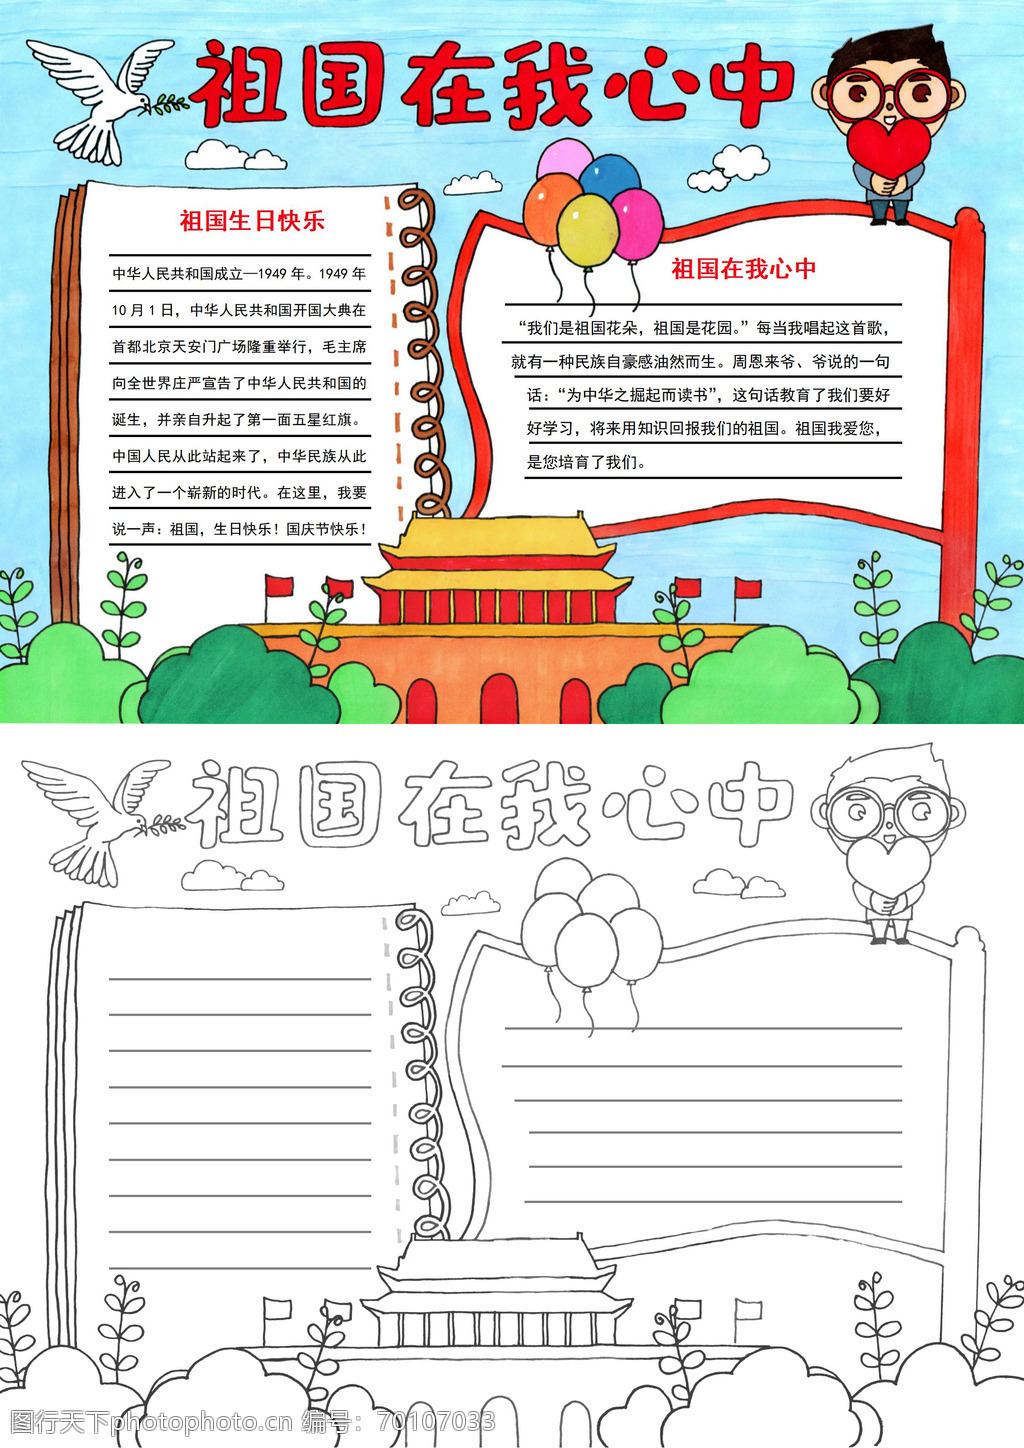 祖国在我心中
祖国生日快乐
中华人民共和国成立—1949 年。1949 年
10 月 1 日，中华人民共和国开国大典在
首都北京天安门广场隆重举行，毛主席
向全世界庄严宣告了中华人民共和国的
诞生，并亲自升起了第一面五星红旗。
中国人民从此站起来了，中华民族从此
进入了一个崭新的时代。在这里，我要
说一声：祖国，生日快乐！国庆节快乐！
祖国在我心中
“我们是祖国花朵，祖国是花园。”每当我唱起这首歌，
就有一种民族自豪感油然而生。周恩来爷、爷说的一句
话：“为中华之掘起而读书”，这句话教育了我们要好
好学习，将来用知识回报我们的祖国。祖国我爱您，
是您培育了我们。
祖国在我心中
图行天下photophoto.cn 编号：70107033